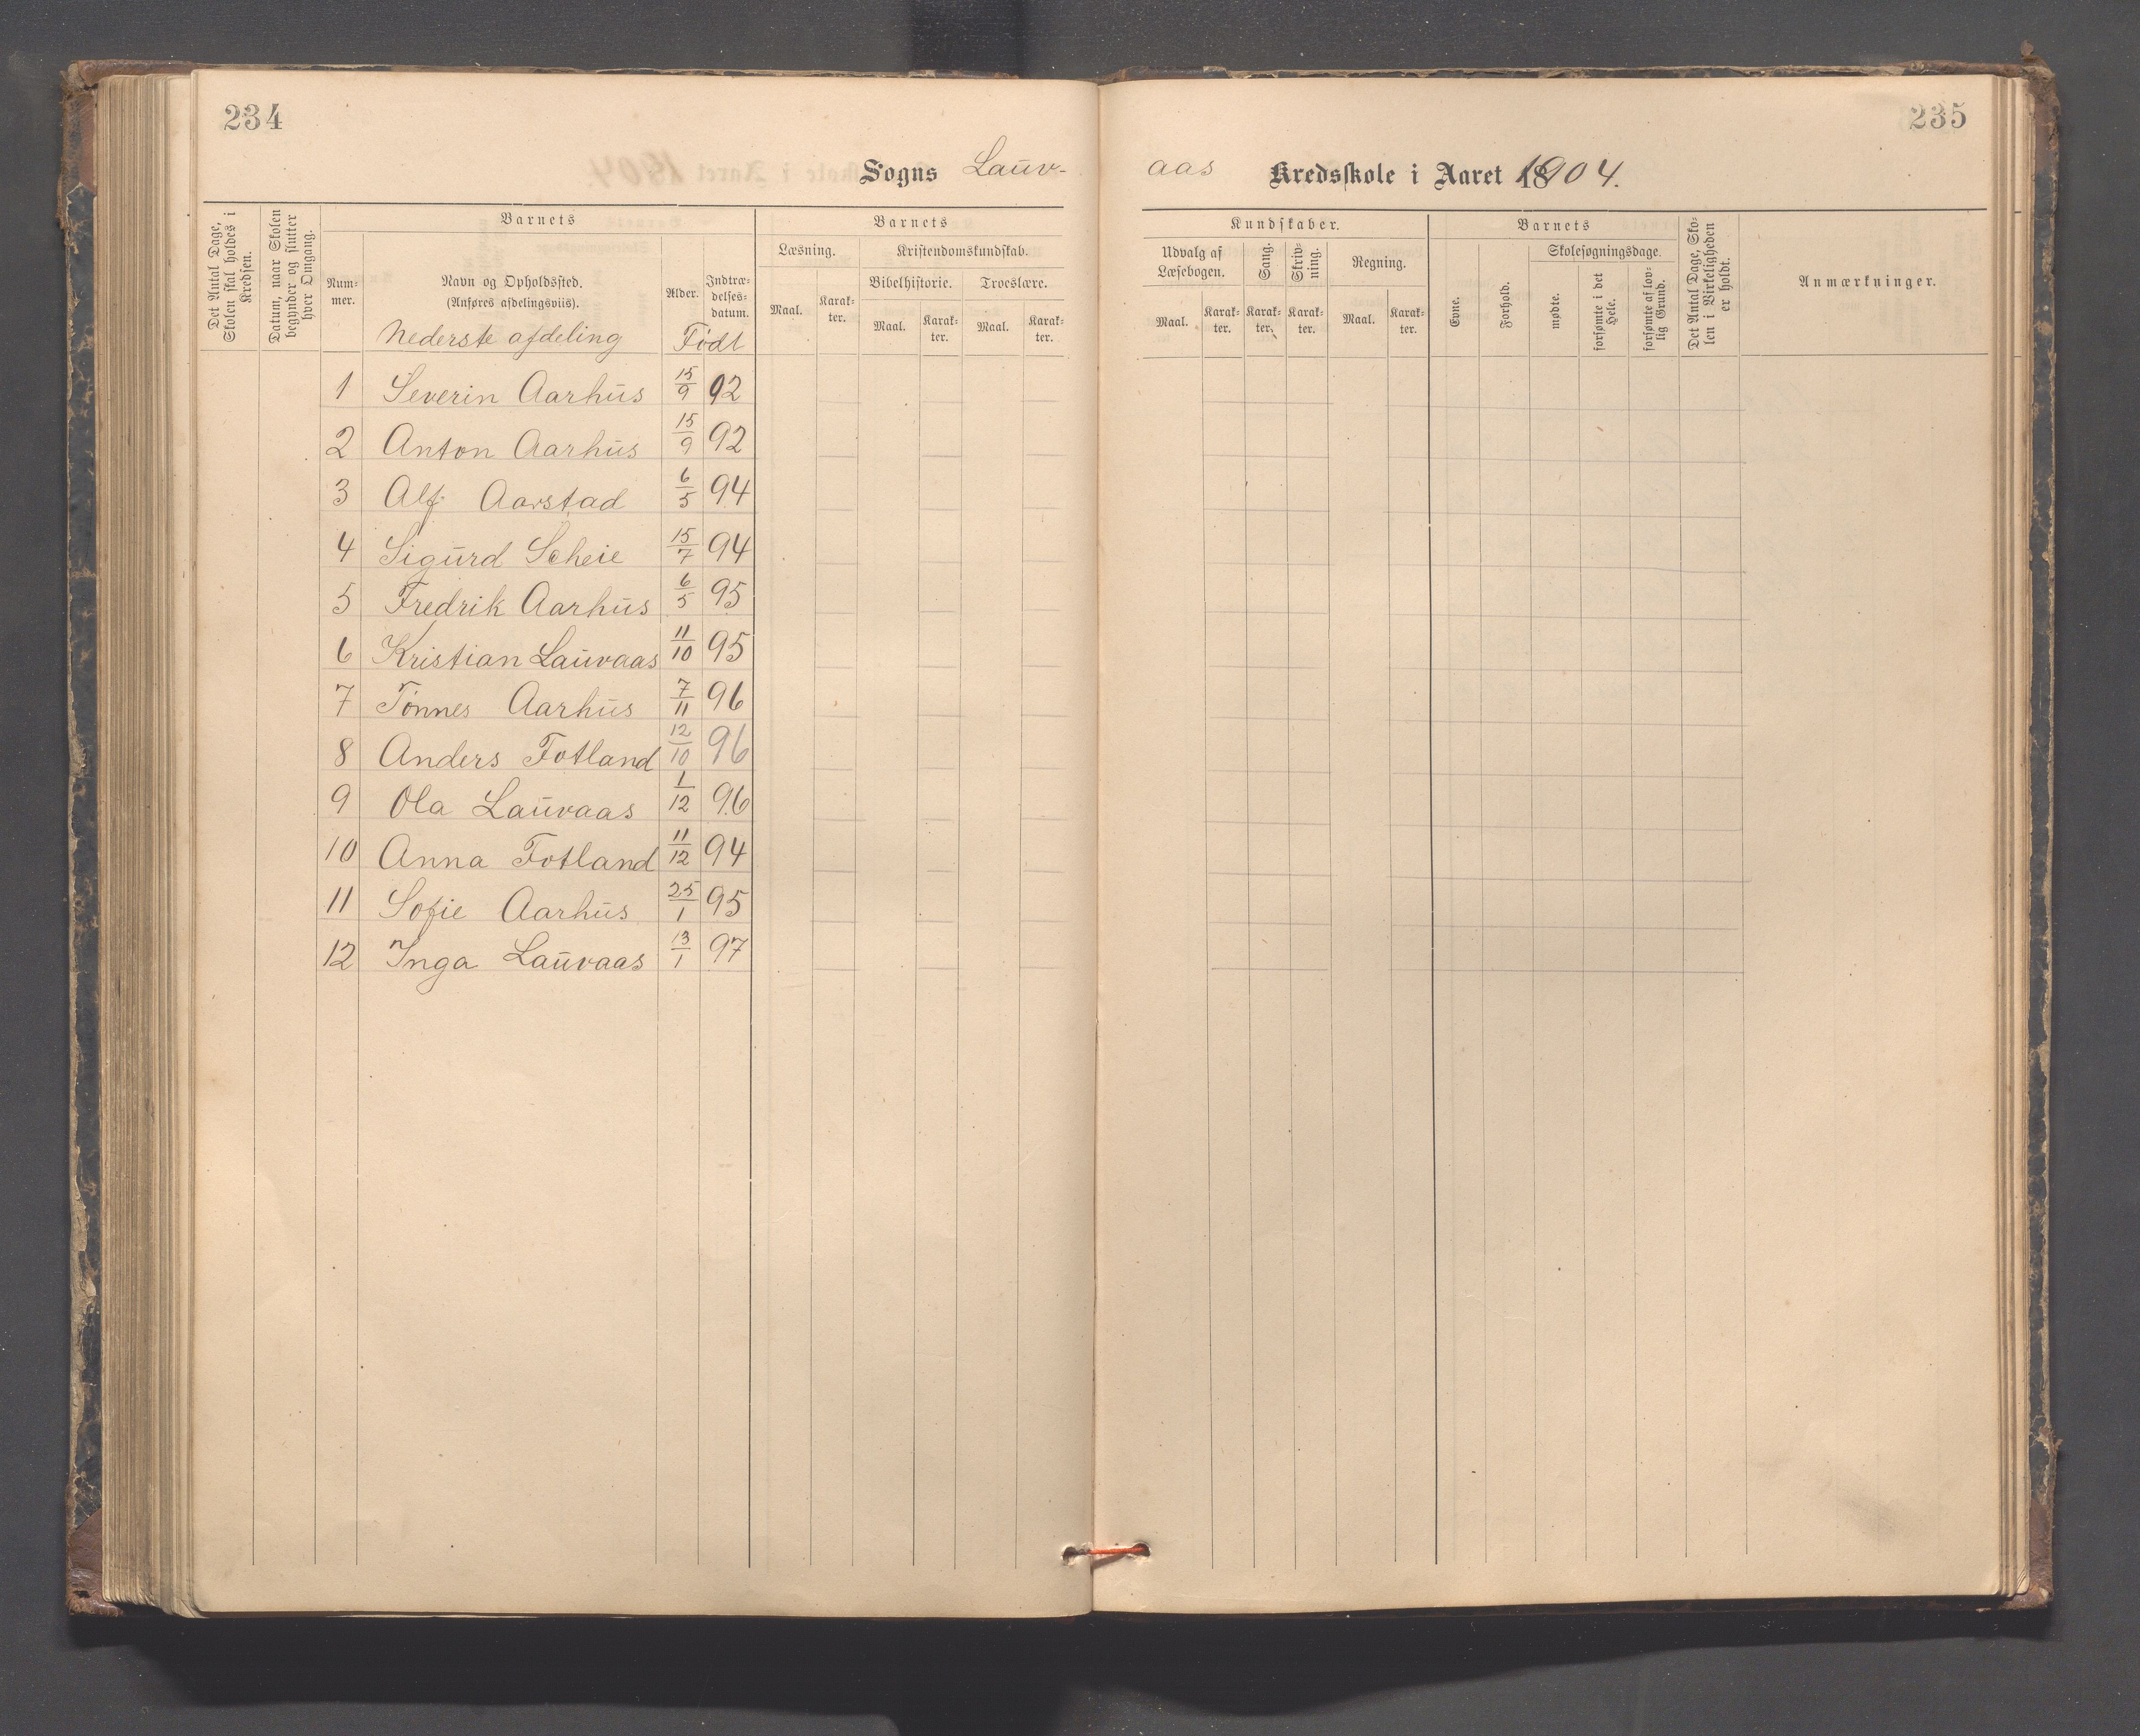 234
235
Sogns Lauv-
aas Kredsskole i Aaret 1904.
Det Antal Dage, Skolen skal holdes i Kredsen.
Datum, naar Skolen begynder og slutter hver Omgang.
Barnets
Num-
mer.
Navn og Opholdssted.
(Anføres afdelingsviis).
Alder.
Indtræ-
delses-
datum.
Barnets
Læsning.
Maal.
Karak-
ter.
Kristendomskundskab.
Bibelhistorie.
Troeslære.
Maal.
Karak-
ter.
Maal.
Karak-
ter.
Kundskaber.
Udvalg af
Læsebogen.
Sang.
Skriv-
ning.
Regning.
Maal.
Karak-
ter.
Karak-
ter.
Karak-
ter.
Maal.
Karak-
ter.
Barnets
Evne.
Forhold.
Skolesøgningsdage.
mødte.
forsømte i det
Hele.
forsømte af lov-
lig Grund.
Det Antal Dage, Sko-
len i Virkeligheden
er holdt.
Anmærkninger.
Nederste afdeling Født
1 Severin Aarhus 15/9 92
2 Anton Aarhus 15/9 92
3 Alf Aarstad 6/5 94
4 Sigurd Scheie 15/7 94
5 Fredrik Aarhus 6/5 95
6 Kristian Lauvaas 11/10 95
7 Tønnes Aarhus 7/11 96
8 Anders Fotland 12/10 96
9 Ola Lauvaas 1/12 96
10 Anna Fotland 11/12 94
11 Sofie Aarhus 25/1 95
12 Inga Lauvaas 13/1 97